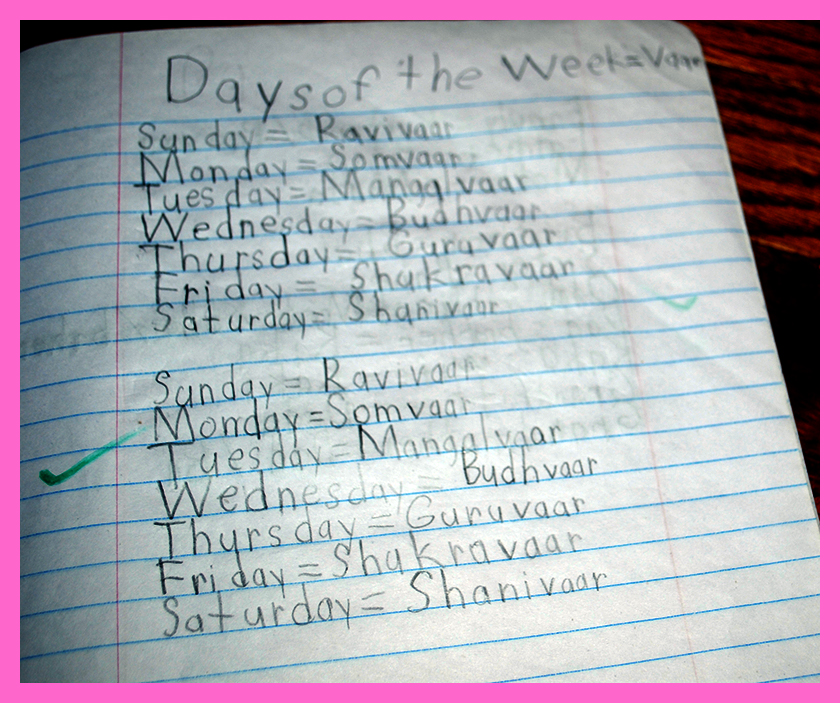 Days of the Week=Vaar
Sunday = Ravivaar
Monday = Somvaar
Tuesday = Mangalvaar
Wednesday = Budhvaar
Thursday = Guruvaar
Friday = Shukravaar
Saturday = Shanivaar
Sunday = Ravivaar
Monday = Somvaar
Tuesday = Mangalvaar
Wednesday = Budhvaar
Thursday = Guruvaar
Friday = Shukravaar
Saturday = Shanivaar